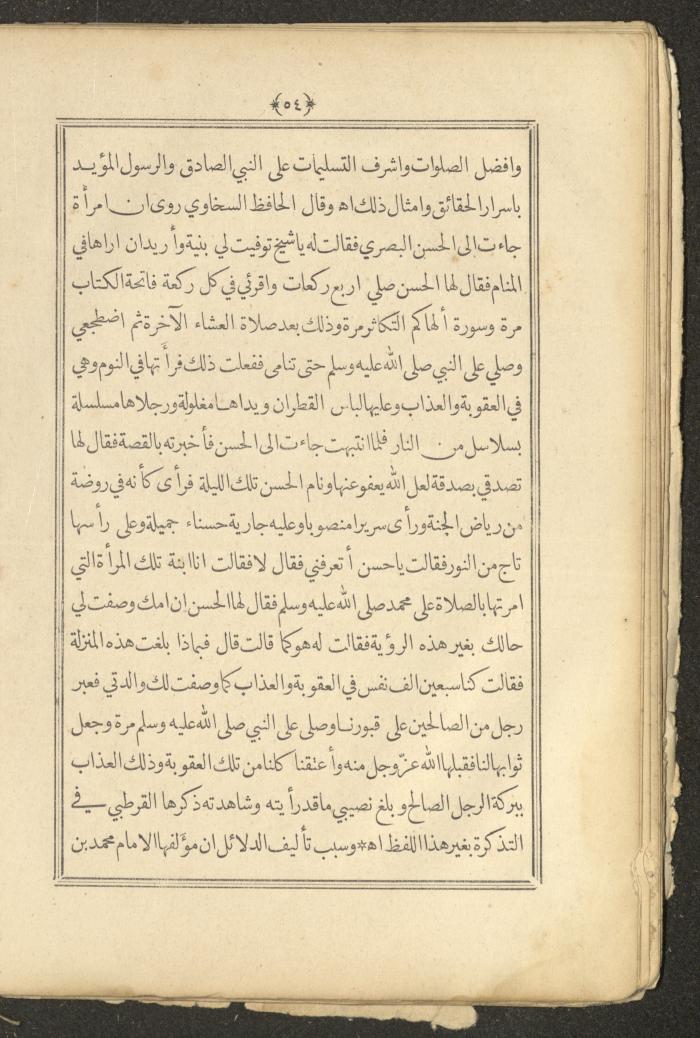 ﴿٥٤﴾
وافضل الصلوات واشرف التسليمات على النبي الصادق والرسول المؤيد
باسرار الحقائق وامثال ذلك اه وقال الحافظ السخاوي روى ان امرأة
جاءت الى الحسن البصري فقالت له ياشيخ توفيت لي بنية وأريدان اراها في
المنام فقال لها الحسن صلي اربع ركعات واقرئي في كل ركعة فاتحة الكتاب
مرة وسورة ألهاكم التكاثر مرة وذلك بعد صلاة العشاء الآخرة ثم اضطجعي
وصلي على النبي صلى الله عليه وسلم حتى تنامى ففعلت ذلك فرأتها في النوم وهي
في العقوبة والعذاب وعليها لباس القطران ويداها مغلولة ورجلاها مسلسلة
بسلاسل من النار فلما انتبهت جاءت الى الحسن فأخبرته بالقصة فقال لها
تصدقي بصدقة لعل الله يعفو عنها ونام الحسن تلك الليلة فرأى كأنه في روضة
من رياض الجنة ورأى سريرا منصوبا وعليه جارية حسناء جميلة وعلى رأسها
تاج من النور فقالت ياحسن أتعرفني فقال لا فقالت انا ابنة تلك المرأة التي
امرتها بالصلاة على محمد صلى الله عليه وسلم فقال لها الحسن إن امك وصفت لي
حالك بغير هذه الرؤية فقالت له هو كما قالت قال فبماذا بلغت هذه المنزلة
فقالت كنا سبعين الف نفس في العقوبة والعذاب كما وصفت لك والدتي فعبر
رجل من الصالحين على قبورنا وصلى على النبي صلى الله عليه وسلم مرة وجعل
ثوابها لنا فقبلها الله عزّ وجل منه وأعتقنا كلنا من تلك العقوبة وذلك العذاب
ببركة الرجل الصالح وبلغ نصيبي ماقد رأيته وشاهدته ذكرها القرطبي في
التذكرة بغير هذا اللفظ اه * وسبب تأليف الدلائل ان مؤلفها الامام محمد بن